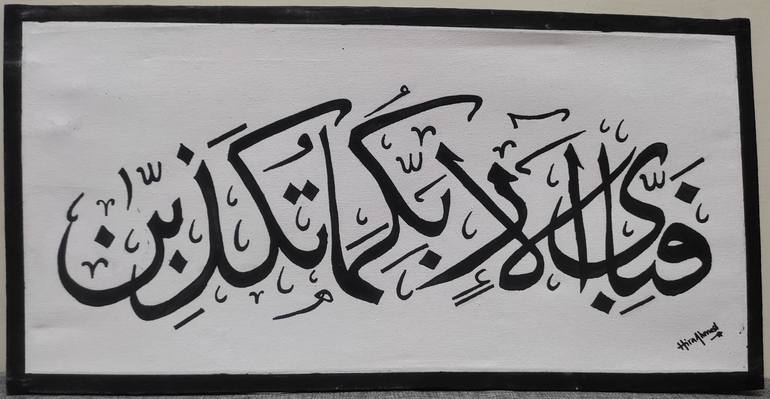 فَبِأَىِّ آلَآءِ رَبِّكُمَا تُكَذِّبٰنِ
Hira Ahmed